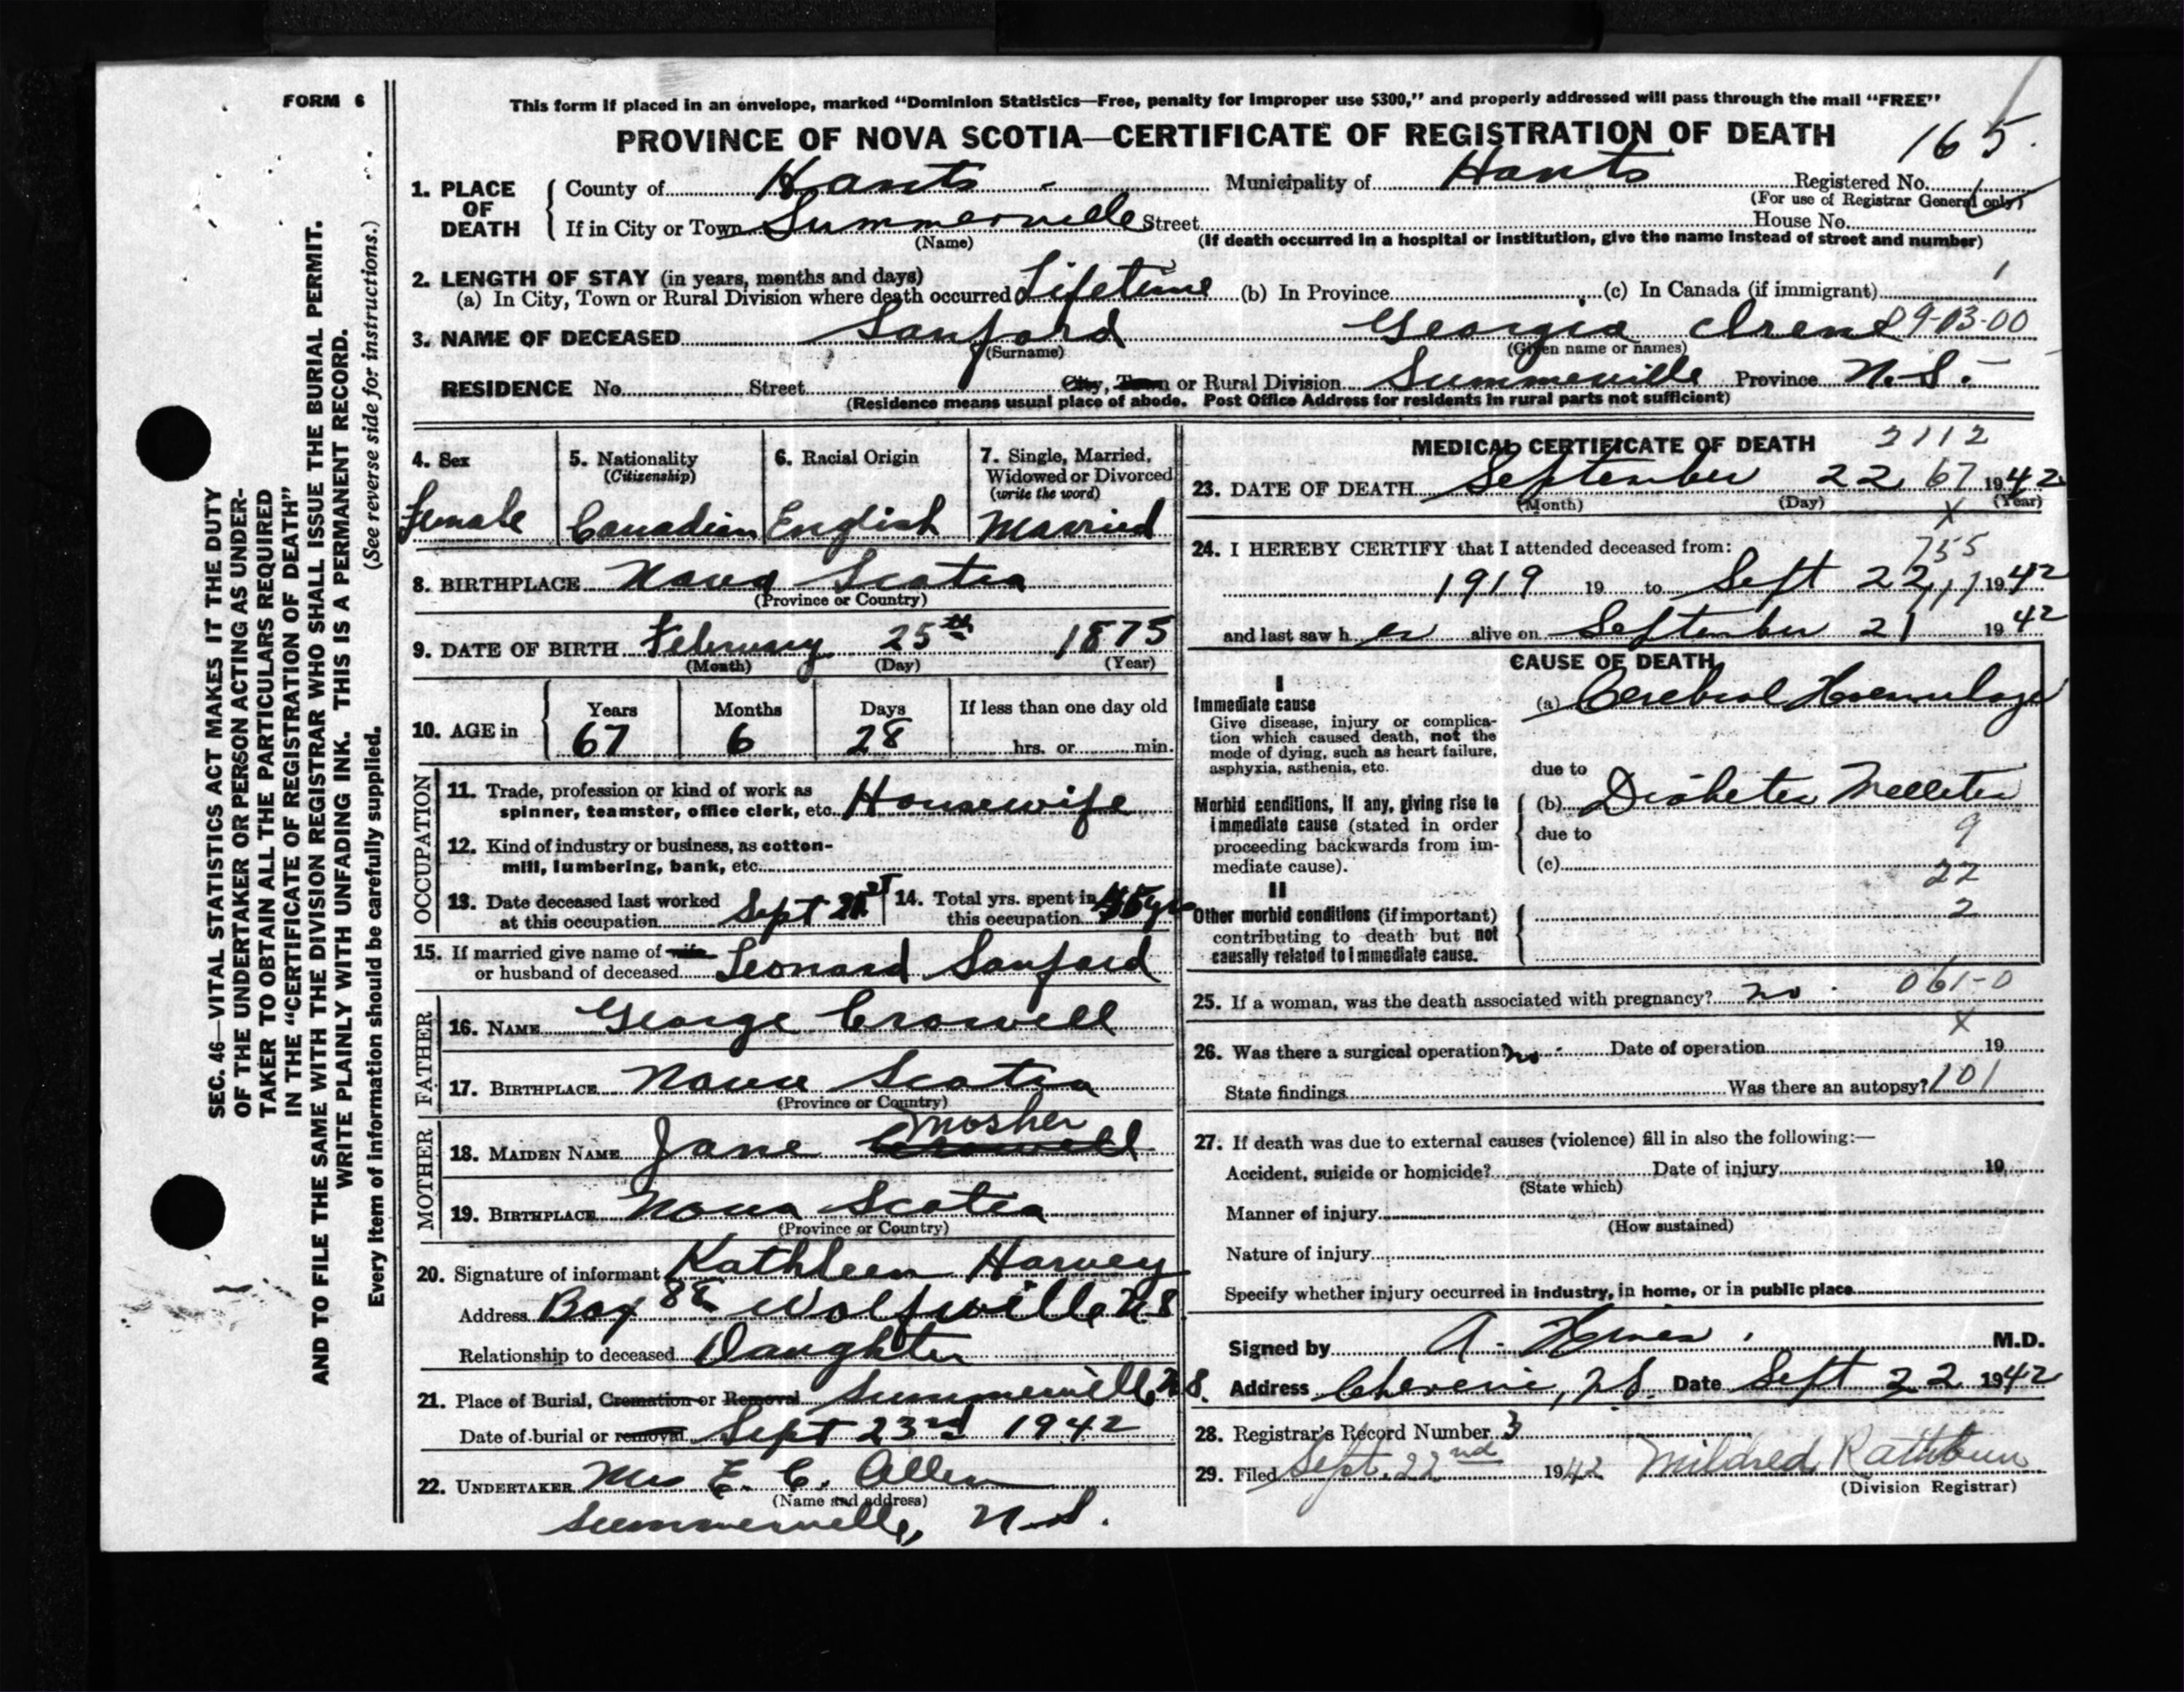 FORM 6
This form if placed in an envelope, marked "Dominion Statistics—Free, penalty for improper use $300," and properly addressed will pass through the mail "FREE"
PROVINCE OF NOVA SCOTIA—CERTIFICATE OF REGISTRATION OF DEATH
165.
1. PLACE OF DEATH
County of Hants - Municipality of Hants Registered No.
(For use of Registrar General only)
If in City or Town Summerville Street House No.
(Name) (If death occurred in a hospital or institution, give the name instead of street and number)
2. LENGTH OF STAY (in years, months and days) 1
(a) In City, Town or Rural Division where death occurred Lifetime (b) In Province (c) In Canada (if immigrant)
3. NAME OF DECEASED Sanford Georgia Irene 89-03-00
(Surname) (Given name or names)
RESIDENCE No. Street City, Town or Rural Division Summerville Province N.S.-
(Residence means usual place of abode. Post Office Address for residents in rural parts not sufficient)
4. Sex
Female
5. Nationality
(Citizenship)
Canadian
6. Racial Origin
English
7. Single, Married, Widowed or Divorced
(write the word)
Married
8. BIRTHPLACE Nova Scotia
(Province or Country)
9. DATE OF BIRTH February 25th 1875
(Month) (Day) (Year)
10. AGE in
Years Months Days If less than one day old
67 6 28 hrs. or min.
OCCUPATION
11. Trade, profession or kind of work as
spinner, teamster, office clerk, etc. Housewife
12. Kind of industry or business, as cotton-
mill, lumbering, bank, etc.
13. Date deceased last worked
at this occupation Sept
14. Total yrs. spent in
this occupation
15. If married give name of wife
or husband of deceased Leonard Sanford
FATHER
16. NAME George Crowell
17. BIRTHPLACE Nova Scotia
(Province or Country)
MOTHER
Mosher
18. MAIDEN NAME Jane Crowell
19. BIRTHPLACE Nova Scotia
(Province or Country)
20. Signature of informant Kathleen Harvey
Address Box 88 Wolfville N.S.
Relationship to deceased Daughter
21. Place of Burial, Cremation or Removal Summerville N.S.
Date of burial or removal Sept 23rd 1942
22. UNDERTAKER Mrs E. C. Allen
(Name and address)
Summerville, N.S.
MEDICAL CERTIFICATE OF DEATH 2112
23. DATE OF DEATH September 22 67 1942
(Month) (Day) X (Year)
24. I HEREBY CERTIFY that I attended deceased from:
755
1919 19 to Sept 22 1942
and last saw her alive on September 21 1942
CAUSE OF DEATH
I
Immediate cause
Give disease, injury or complica-
tion which caused death, not the
mode of dying, such as heart failure,
asphyxia, asthenia, etc.
(a) Cerebral Haemorhage
due to
Morbid conditions, if any, giving rise to
immediate cause (stated in order
proceeding backwards from im-
mediate cause).
(b) Diabetes Mellitus
9
due to
(c)
22
II
2
Other morbid conditions (if important)
contributing to death but not
causally related to immediate cause.
25. If a woman, was the death associated with pregnancy? no. 061-0
X
26. Was there a surgical operation? no. Date of operation 19
State findings Was there an autopsy? 101
27. If death was due to external causes (violence) fill in also the following:—
Accident, suicide or homicide? Date of injury 19
(State which)
Manner of injury
(How sustained)
Nature of injury
Specify whether injury occurred in industry, in home, or in public place
Signed by A. M.D.
Address Cheverie, N.S. Date Sept 22 1942
28. Registrar's Record Number 3
29. Filed Sept. 22nd 1942 Mildred Rathbun
(Division Registrar)
SEC. 46—VITAL STATISTICS ACT MAKES IT THE DUTY
OF THE UNDERTAKER OR PERSON ACTING AS UNDER-
TAKER TO OBTAIN ALL THE PARTICULARS REQUIRED
IN THE "CERTIFICATE OF REGISTRATION OF DEATH"
AND TO FILE THE SAME WITH THE DIVISION REGISTRAR WHO SHALL ISSUE THE BURIAL PERMIT.
WRITE PLAINLY WITH UNFADING INK. THIS IS A PERMANENT RECORD.
Every item of information should be carefully supplied. (See reverse side for instructions.)